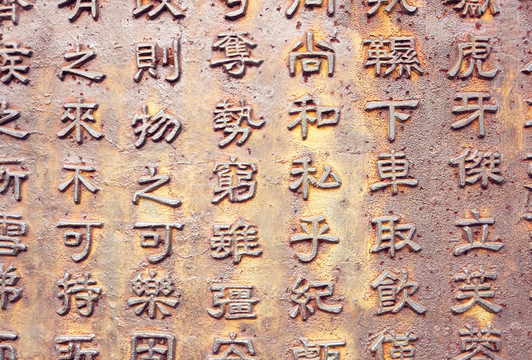 虎牙傑立芙蓉
羈下車取飲
尚和私乎紀
奪勢窮雖彊
則物之可樂
有之來不可持
之所雪